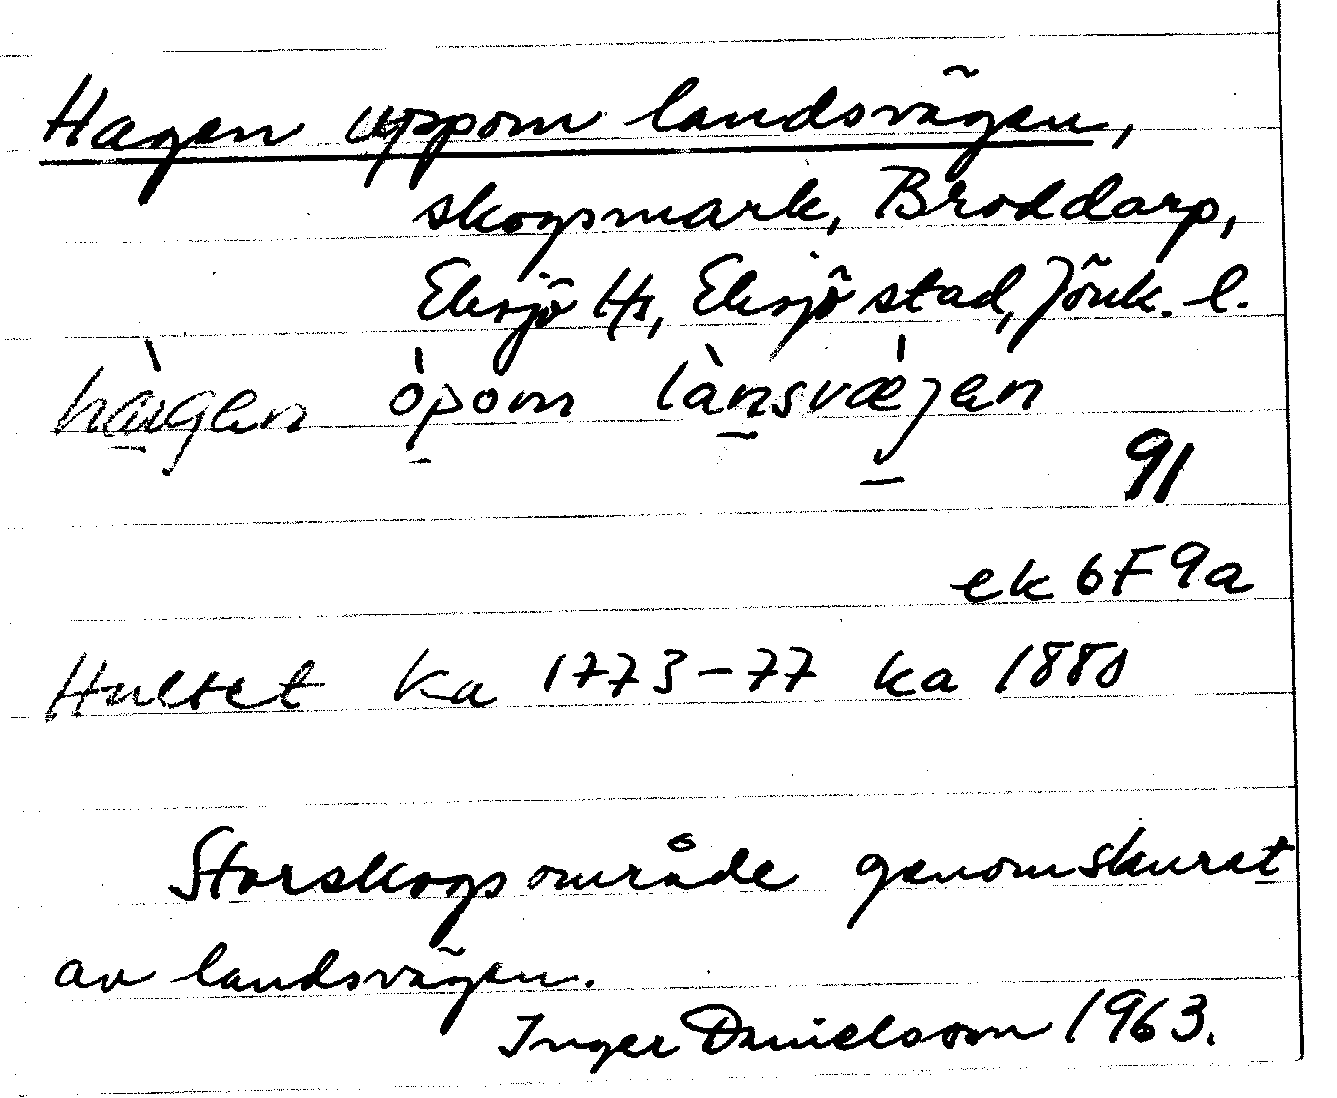 Hagen uppom landsvägen,
skogsmark, Broddarp,
Eksjö Hs, Eksjö stad, Jönk. l.
hàgen òpom lànsvæ̀jen
91
ek 6F9a
Hultet ka 1773-77 ka 1880
Storskogsområde genomskuret
av landsvägen.
Inger Danielsson 1963.